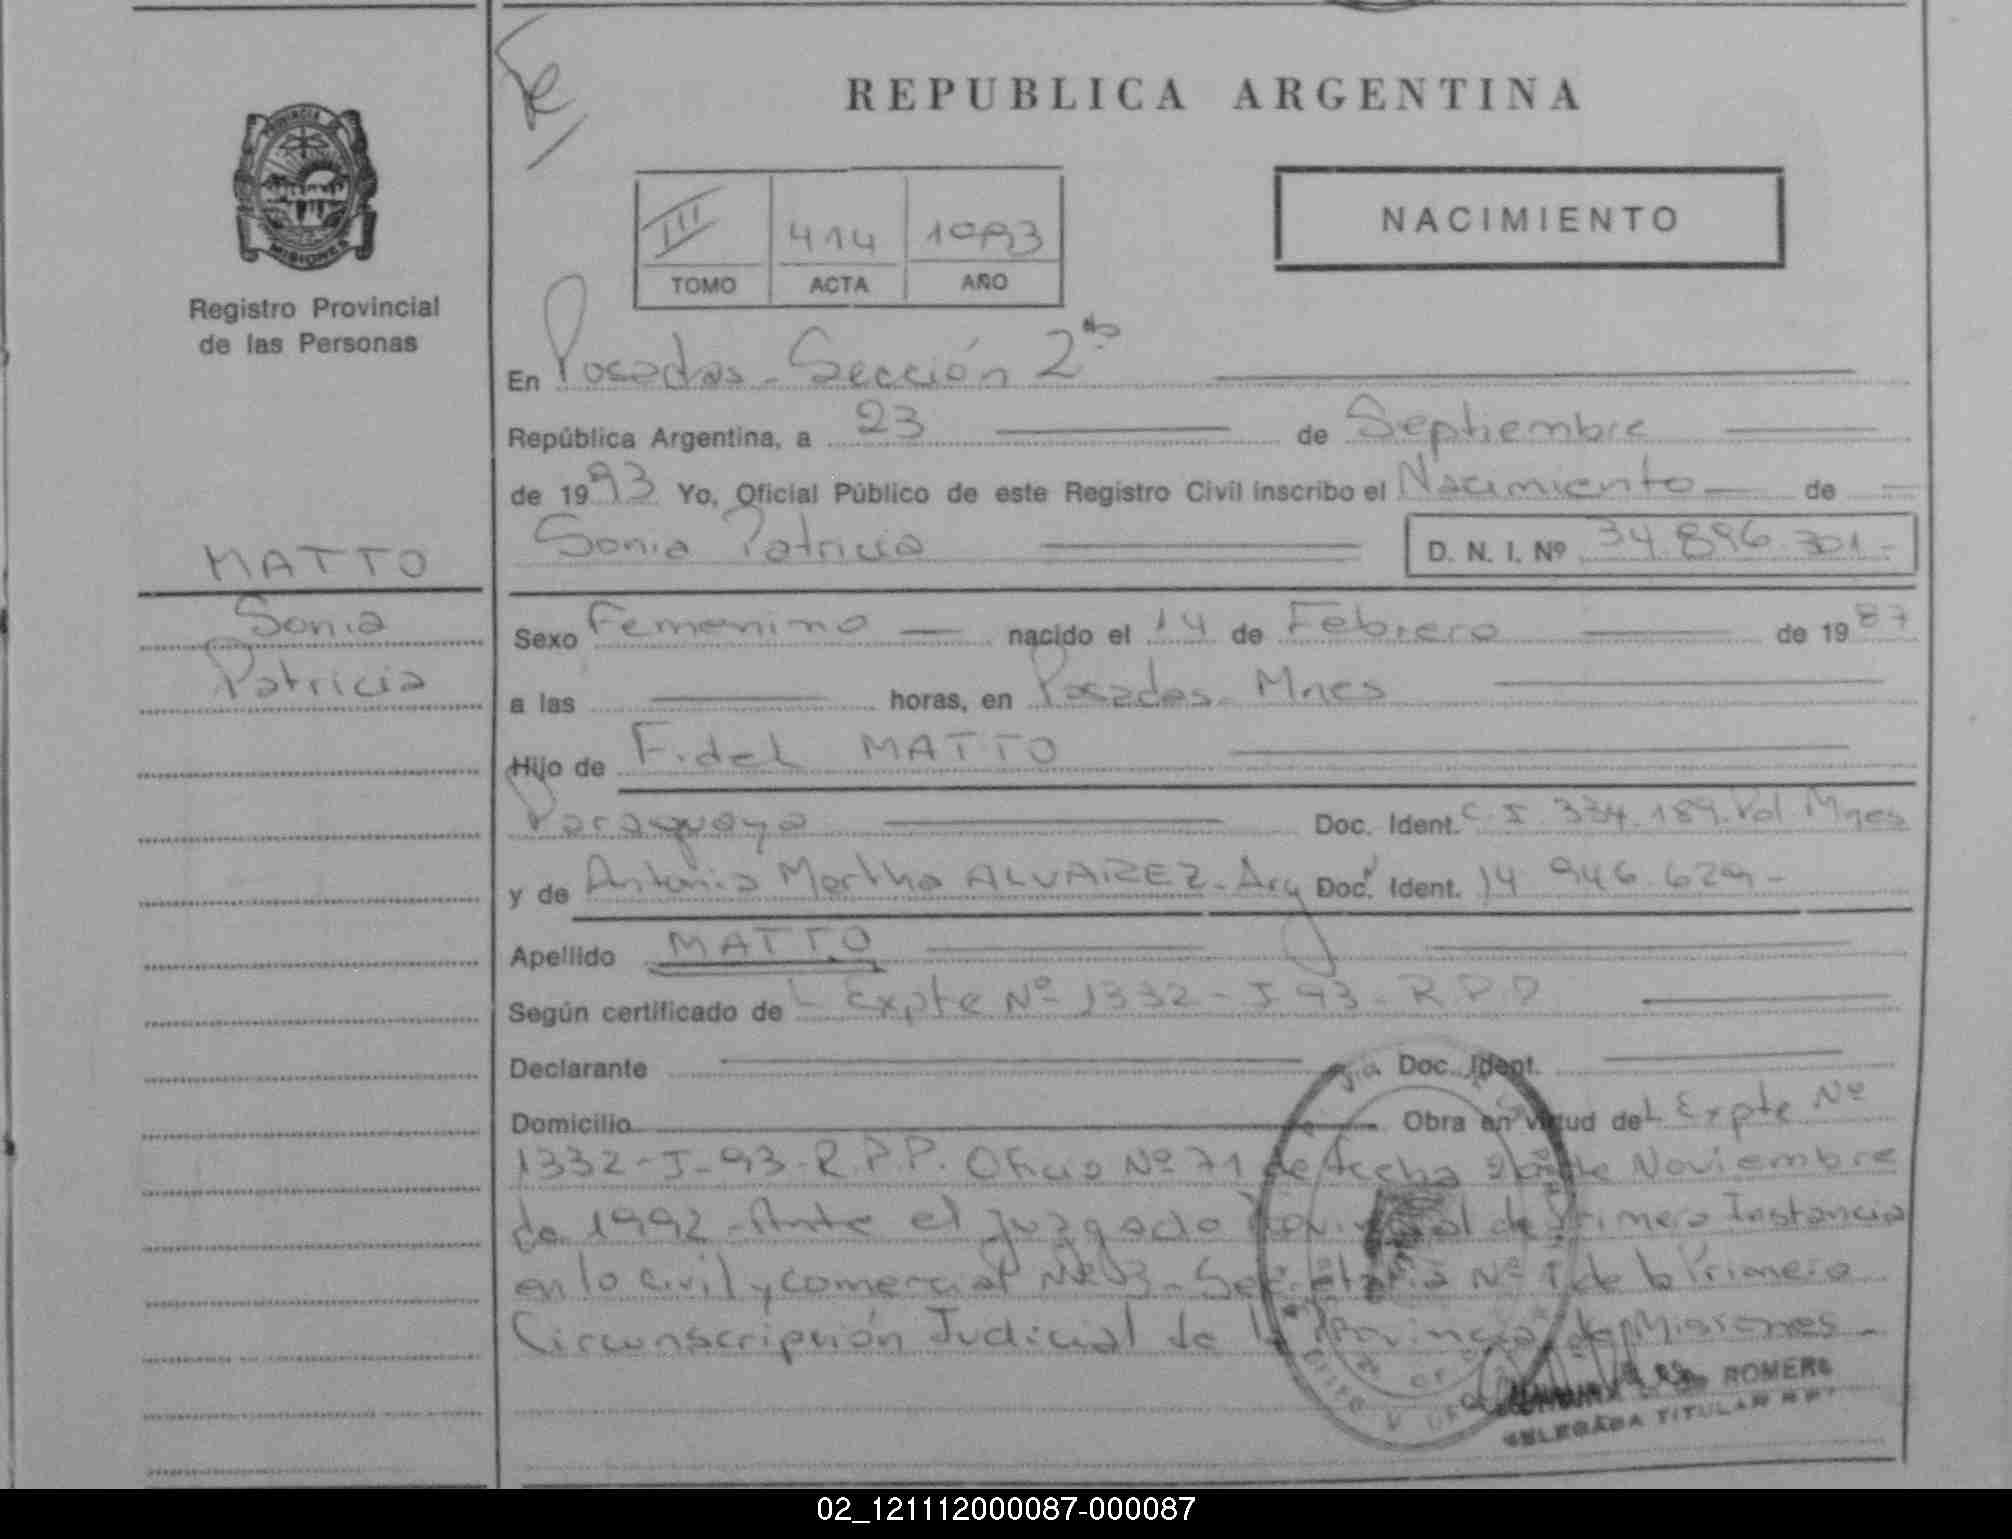 REPUBLICA ARGENTINA
PROVINCIA DE
MISIONES
Registro Provincial
de las Personas
III 414 1993
TOMO ACTA AÑO
NACIMIENTO
En Posadas - Sección 2da
República Argentina, a 23 de Septiembre
de 1993 Yo, Oficial Público de este Registro Civil inscribo el Nacimiento de
Sonia Patricia D. N. I. Nº 34.896.301.-
MATTO
Sonia
Patricia
Sexo Femenino nacido el 14 de Febrero de 1987
a las horas, en Posadas - Mnes
Hijo de Fidel MATTO
Paraguayo Doc. Ident. C.I. 334.189. Pol Mnes
y de Antonia Martha ALVAREZ - Arg Doc. Ident. 14 946.629-
Apellido MATTO
Según certificado de L Expte Nº 1332 - J - 93 - R.P.P
Declarante Doc. Ident.
Domicilio Obra en virtud deL Expte Nº
1332 - J - 93 - R.P.P. Oficio Nº 71 de fecha de Noviembre
de 1992 - Ante el Juzgado Provincial de Primera Instancia
en lo civil y comercial Nº 3 - Secretaria Nº 1 de la Primera
Circunscripción Judicial de la Provincia de Misiones -
ROMERO
DELEGADA TITULAR
02_121112000087-000087